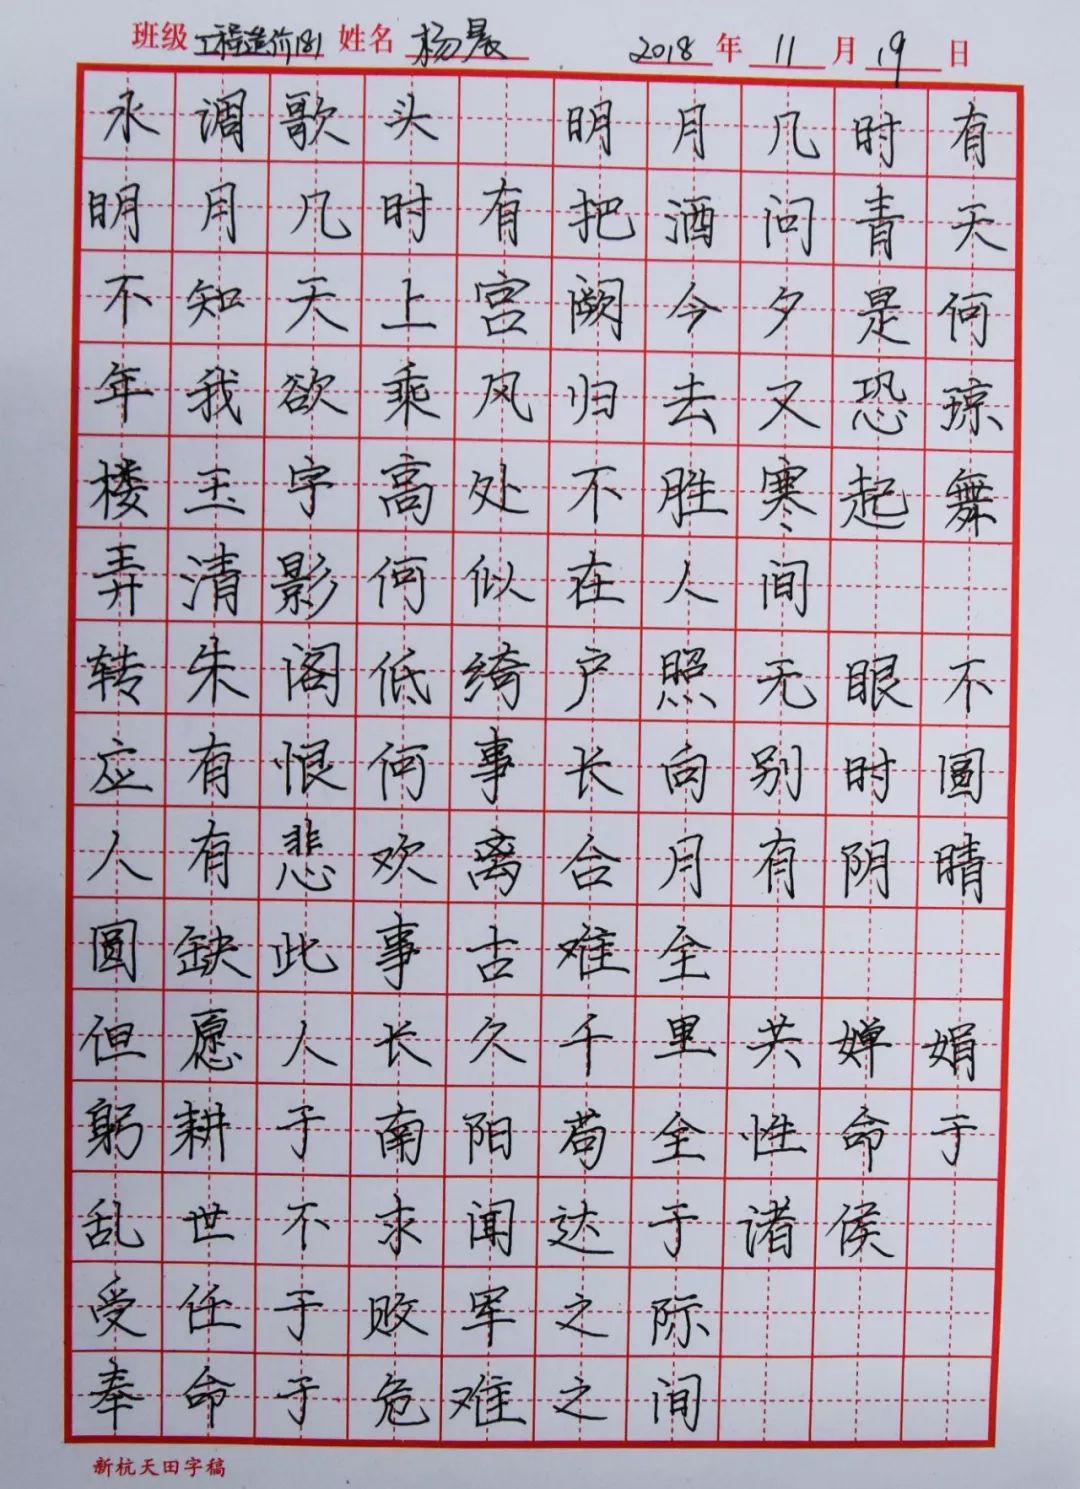 班级 工程造价181 姓名 杨晨 2018 年 11 月 19 日
水调歌头 明月几时有
明月几时有把酒问青天
不知天上宫阙今夕是何
年我欲乘风归去又恐琼
楼玉宇高处不胜寒起舞
弄清影何似在人间
转朱阁低绮户照无眼不
应有恨何事长向别时圆
人有悲欢离合月有阴晴
圆缺此事古难全
但愿人长久千里共婵娟
躬耕于南阳苟全性命于
乱世不求闻达于诸侯
受任于败军之际
奉命于危难之间
新杭天田字稿